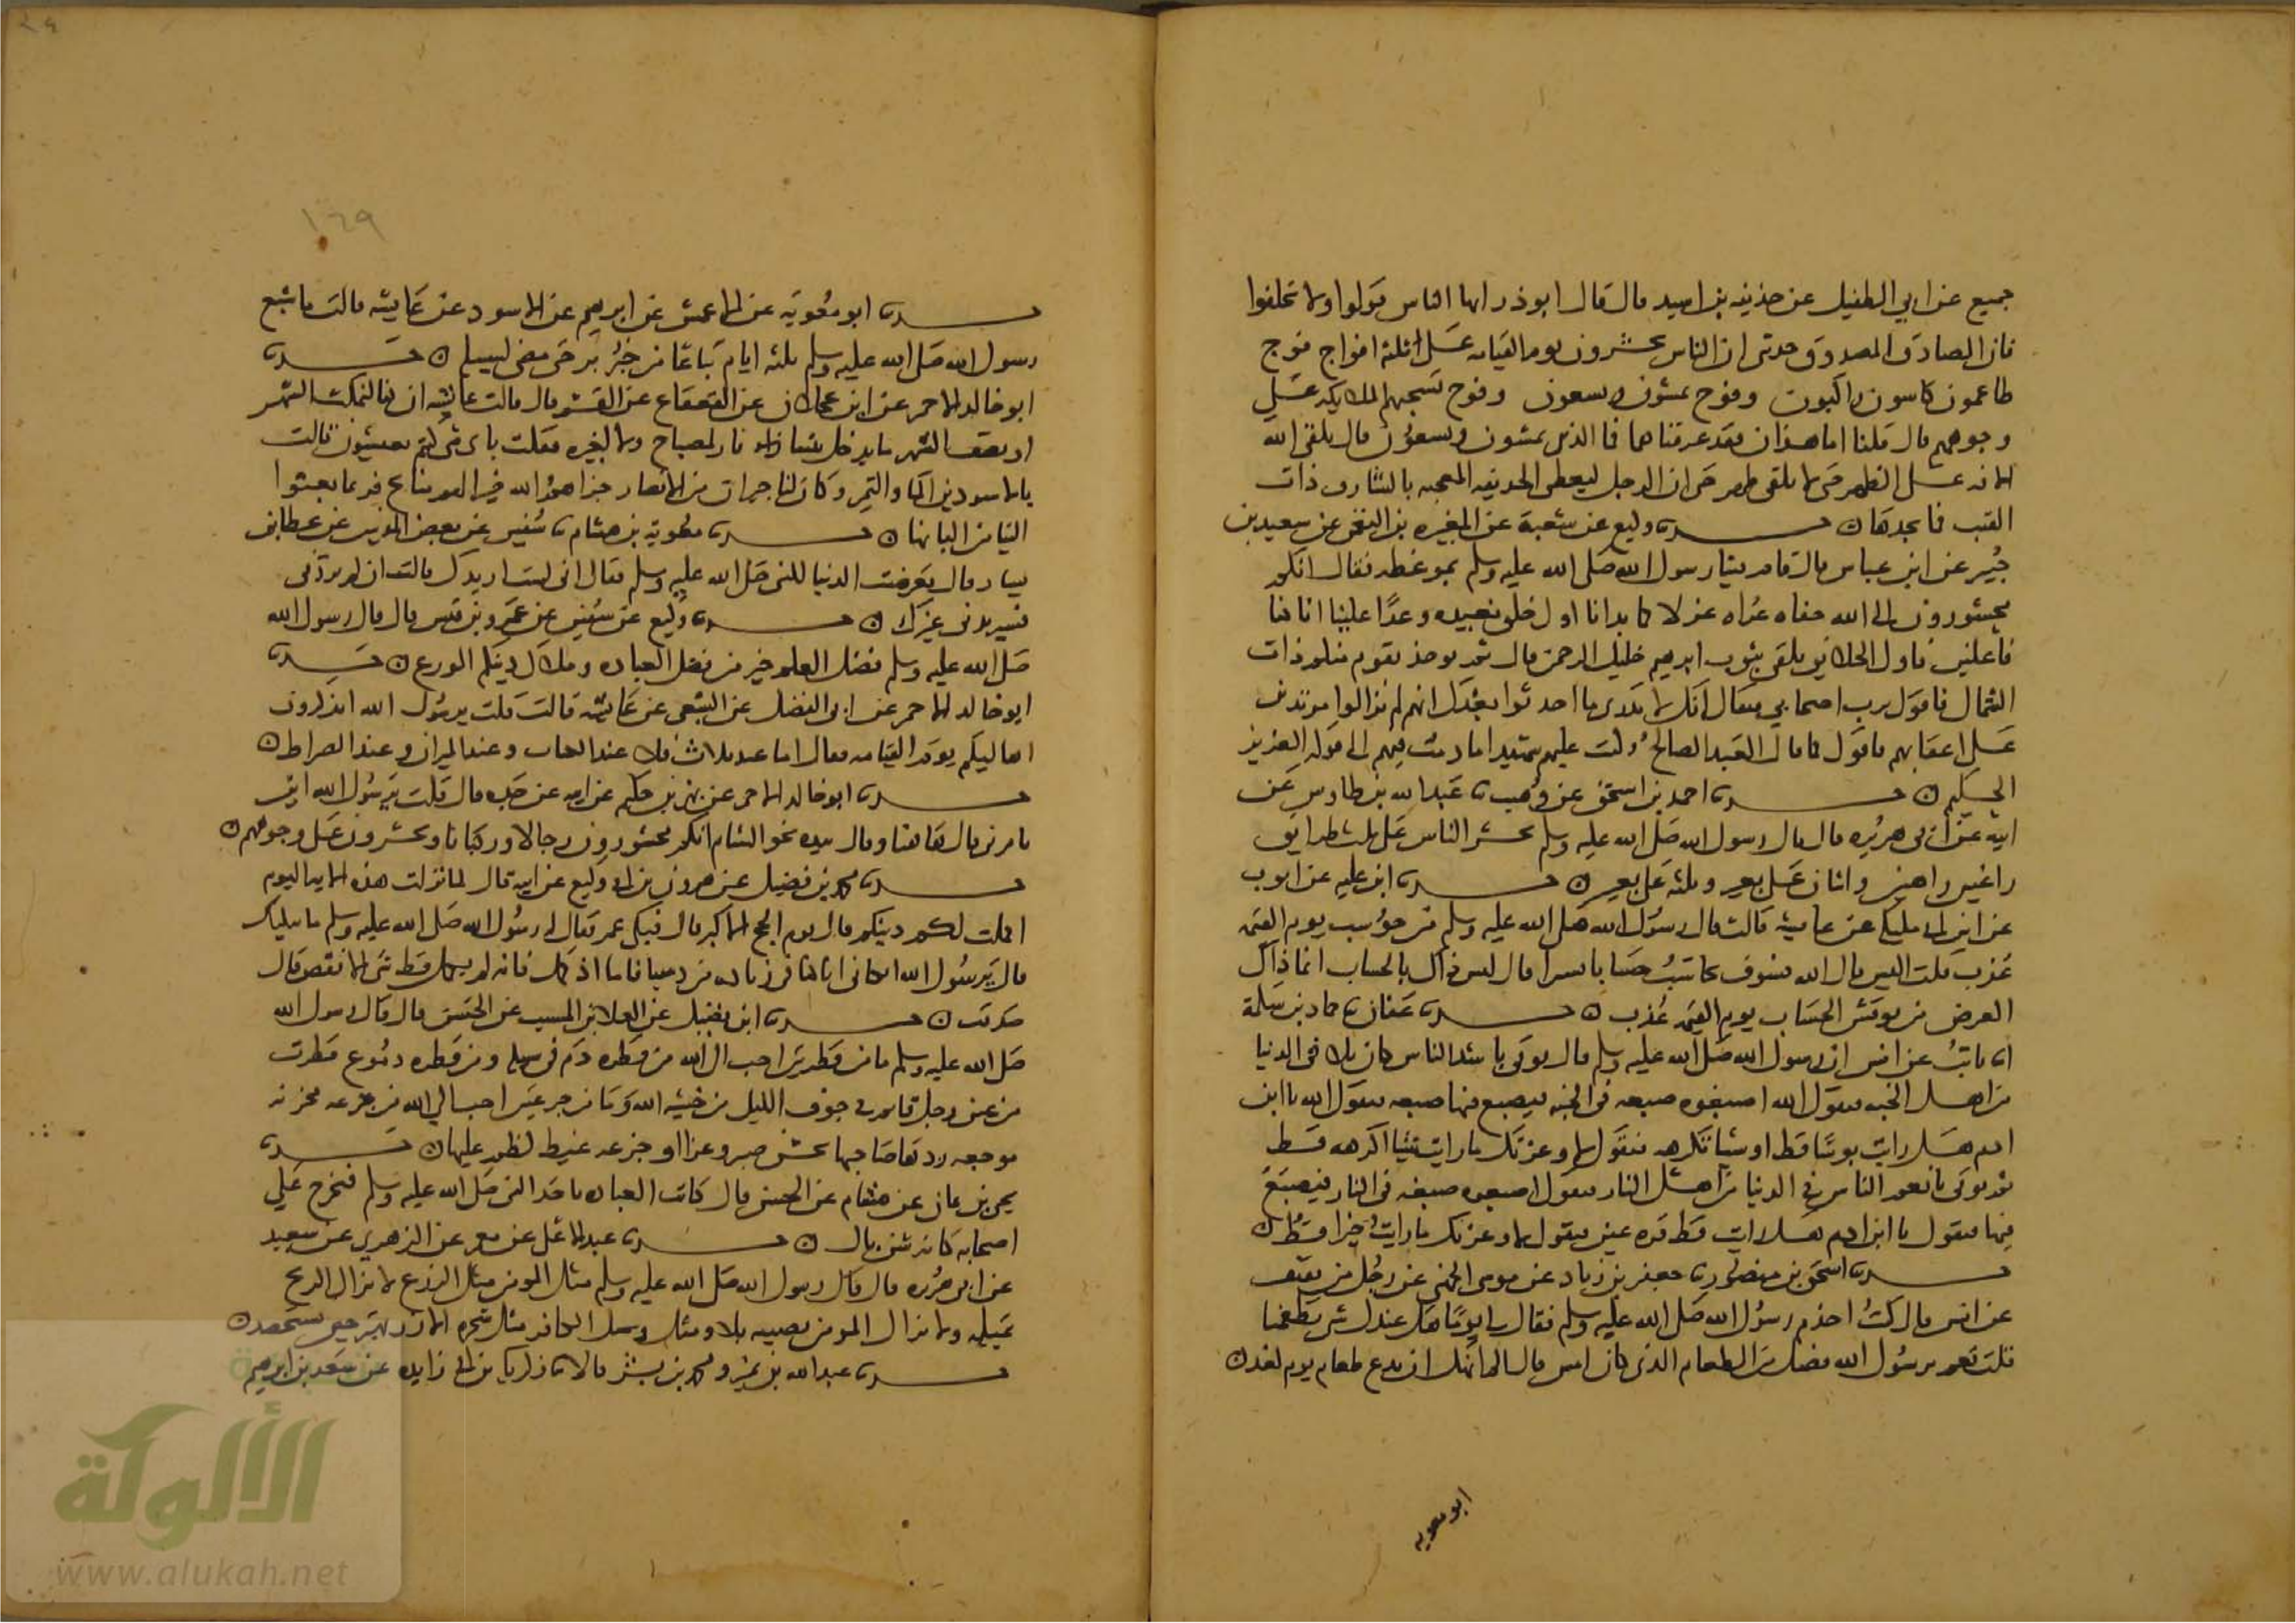 جميع عن ابي الطفيل عن حذيفه بن اسيد قال قال ابو ذر ايها الناس قولوا ولا تحلفوا
فان الصادق المصدوق حدثني ان الناس يحشرون يوم القيامه على ثلثة افواج فوج
طاعمون كاسون راكبون وفوج يمشون ويسعون وفوج تسحبهم الملائكه على
وجوههم قال قلنا اما هذان فقد عرفناهما فما الذين يمشون ويسعون قال يلقى الله
الافه على الظهر حتى لا يلقى ظهر حتى ان الرجل ليعطى الحديقه المعجبه بالشارف ذات
القتب فما يجدها حدثنا وكيع عن شعبة عن المغيره بن النعمن عن سعيد بن
جبير عن ابن عباس قال قام فينا رسول الله صلى الله عليه وسلم بموعظه فقال انكم
محشورون الى الله حفاه عراه غرلا كما بدانا اول خلق نعيده وعدًا علينا انا كنا
فاعلين فاول الخلائق يلقى بثوب ابرهيم خليل الرحمن قال ثم يوخذ بقوم منكم ذات
الشمال فاقول يرب اصحابي فيقال انك لا تدري ما احدثوا بعدك انهم لم يزالوا مرتدين
على اعقابهم فاقول كما قال العبد الصالح وكنت عليهم شهيدا ما دمت فيهم الى قوله العزيز
الحكيم حدثنا احمد بن اسحق عن وهيب عبد الله بن طاوس عن
ابيه عن ابي هريره قال قال رسول الله صلى الله عليه وسلم يحشر الناس على ثلث طرايق
راغبين راهبين واثنان على بعير وثلثه على بعير حدثنا ابن عليه عن ايوب
عن ابن ابي مليكه عن عايشه قالت قال رسول الله صلى الله عليه وسلم من حوسب يوم القيمه
عذب قلت اليس قال الله فسوف يحاسب حسابا يسيرا قال ليس ذاك بالحساب انما ذاك
العرض من نوقش الحساب يوم القيمه عذب حدثنا عفان حماد بن سلمة
ثابت عن انس ان رسول الله صلى الله عليه وسلم قال يوتى باشد الناس كان بلا في الدنيا
من اهل الجنه فيقول الله اصبغوه صبغه في الجنه فيصبغ فيها صبغه فيقول الله يا ابن
ادم هل رايت بوسًا قط او شيا تكرهه فيقول لا وعزتك ما رايت شيا اكرهه قط
ثم يوتى بانعم الناس في الدنيا من اهل النار فيقول اصبغوه صبغه في النار فيصبغ
فيها فيقول يا ابن ادم هل رايت قط قره عين فيقول لا وعزتك ما رايت خيرا قط
حدثنا اسحق بن منصور جعفر بن زياد عن موسى الجهني عن رجل من ثقيف
عن انس قال كنت اخدم رسول الله صلى الله عليه وسلم فقال لي يومًا هل عندك شي تطعمنا
قلت نعم يرسول الله فضل من الطعام الذي كان امس قال الم انهك ان تدع طعام يوم لغد
ابو معويه
١٦٩
حدثنا ابو معويه عن الاعمش عن ابرهيم عن الاسود عن عايشه قالت ما شبع
رسول الله صلى الله عليه وسلم ثلثه ايام تباعًا من خبز بر حتى مضى لسبيله حدثنا
ابو خالد الاحمر عن ابن عجلان عن القعقاع عن القسم قال قالت عايشه ان كنا لنمكث الشهر
او نصف الشهر ما يدخل بيتنا نار لمصباح ولا لغيره فقلت باي شي كنتم تعيشون قالت
بالاسودين الماء والتمر وكان لنا جيران من الانصار جزاهم الله خيرا لهم منايح فربما بعثوا
الينا من البانها حدثنا معويه بن هشام سفين عن بعض المدنيين عن عطا بن
يسار قال تعرضت الدنيا للنبي صلى الله عليه وسلم فقال اني لست اريدك قالت ان لم تردني
فسيريدني غيرك حدثنا وكيع عن سفين عن عمرو بن قيس قال قال رسول الله
صلى الله عليه وسلم فضل العلم خير من فضل العباده وملاك دينكم الورع حدثنا
ابو خالد الاحمر عن ابي الفضل عن الشعبي عن عايشه قالت قلت يرسول الله اتذكرون
اهاليكم يوم القيامه فقال اما عند ثلاث فلا عند الكتاب وعند الميزان وعند الصراط
حدثنا ابو خالد الاحمر عن بهز بن حكيم عن ابيه عن جده قال قلت يرسول الله اين
تامرني قال هاهنا وقال بيده نحو الشام انكم محشورون رجالا وركبانا وتحشرون على وجوهكم
حدثنا محمد بن فضيل عن هرون بن ابي وكيع عن ابيه قال لما نزلت هذه الايه اليوم
اكملت لكم دينكم قال يوم الحج الاكبر قال فبكى عمر فقال له رسول الله صلى الله عليه وسلم ما يبكيك
قال يرسول الله ابكاني انا كنا في زياده من ديننا فاما اذ كمل فانه لم يكمل قط شي الا نقص قال
صدقت حدثنا ابن فضيل عن العلا بن المسيب عن الحسن قال قال رسول الله
صلى الله عليه وسلم ما من قطرتين احب الى الله من قطره دم في سبيله ومن قطره دموع قطرت
من عين رجل قايم في جوف الليل من خشيه الله وما من جرعتين احب الى الله من جرعه محزنه
موجعه ردها صاحبها بحسن صبر وعزا او جرعه غيظ كظم عليها حدثنا
يحيى بن يمان عن هشام عن الحسن قال كانت العباه تاخذ النبي صلى الله عليه وسلم فيخرج على
اصحابه كانه شن بال حدثنا عبد الاعلى عن معمر عن الزهري عن سعيد
عن ابي هريره قال قال رسول الله صلى الله عليه وسلم مثل المومن مثل الزرع لا تزال الريح
تميله ولا يزال المومن يصيبه بلاء ومثل الكافر مثل شجره الارز لا تهتز حتى تستحصد
حدثنا عبد الله بن نمير ومحمد بن بشر قالا زكريا بن ابي زايده عن سعد بن ابرهيم
الألوكة
www.alukah.net